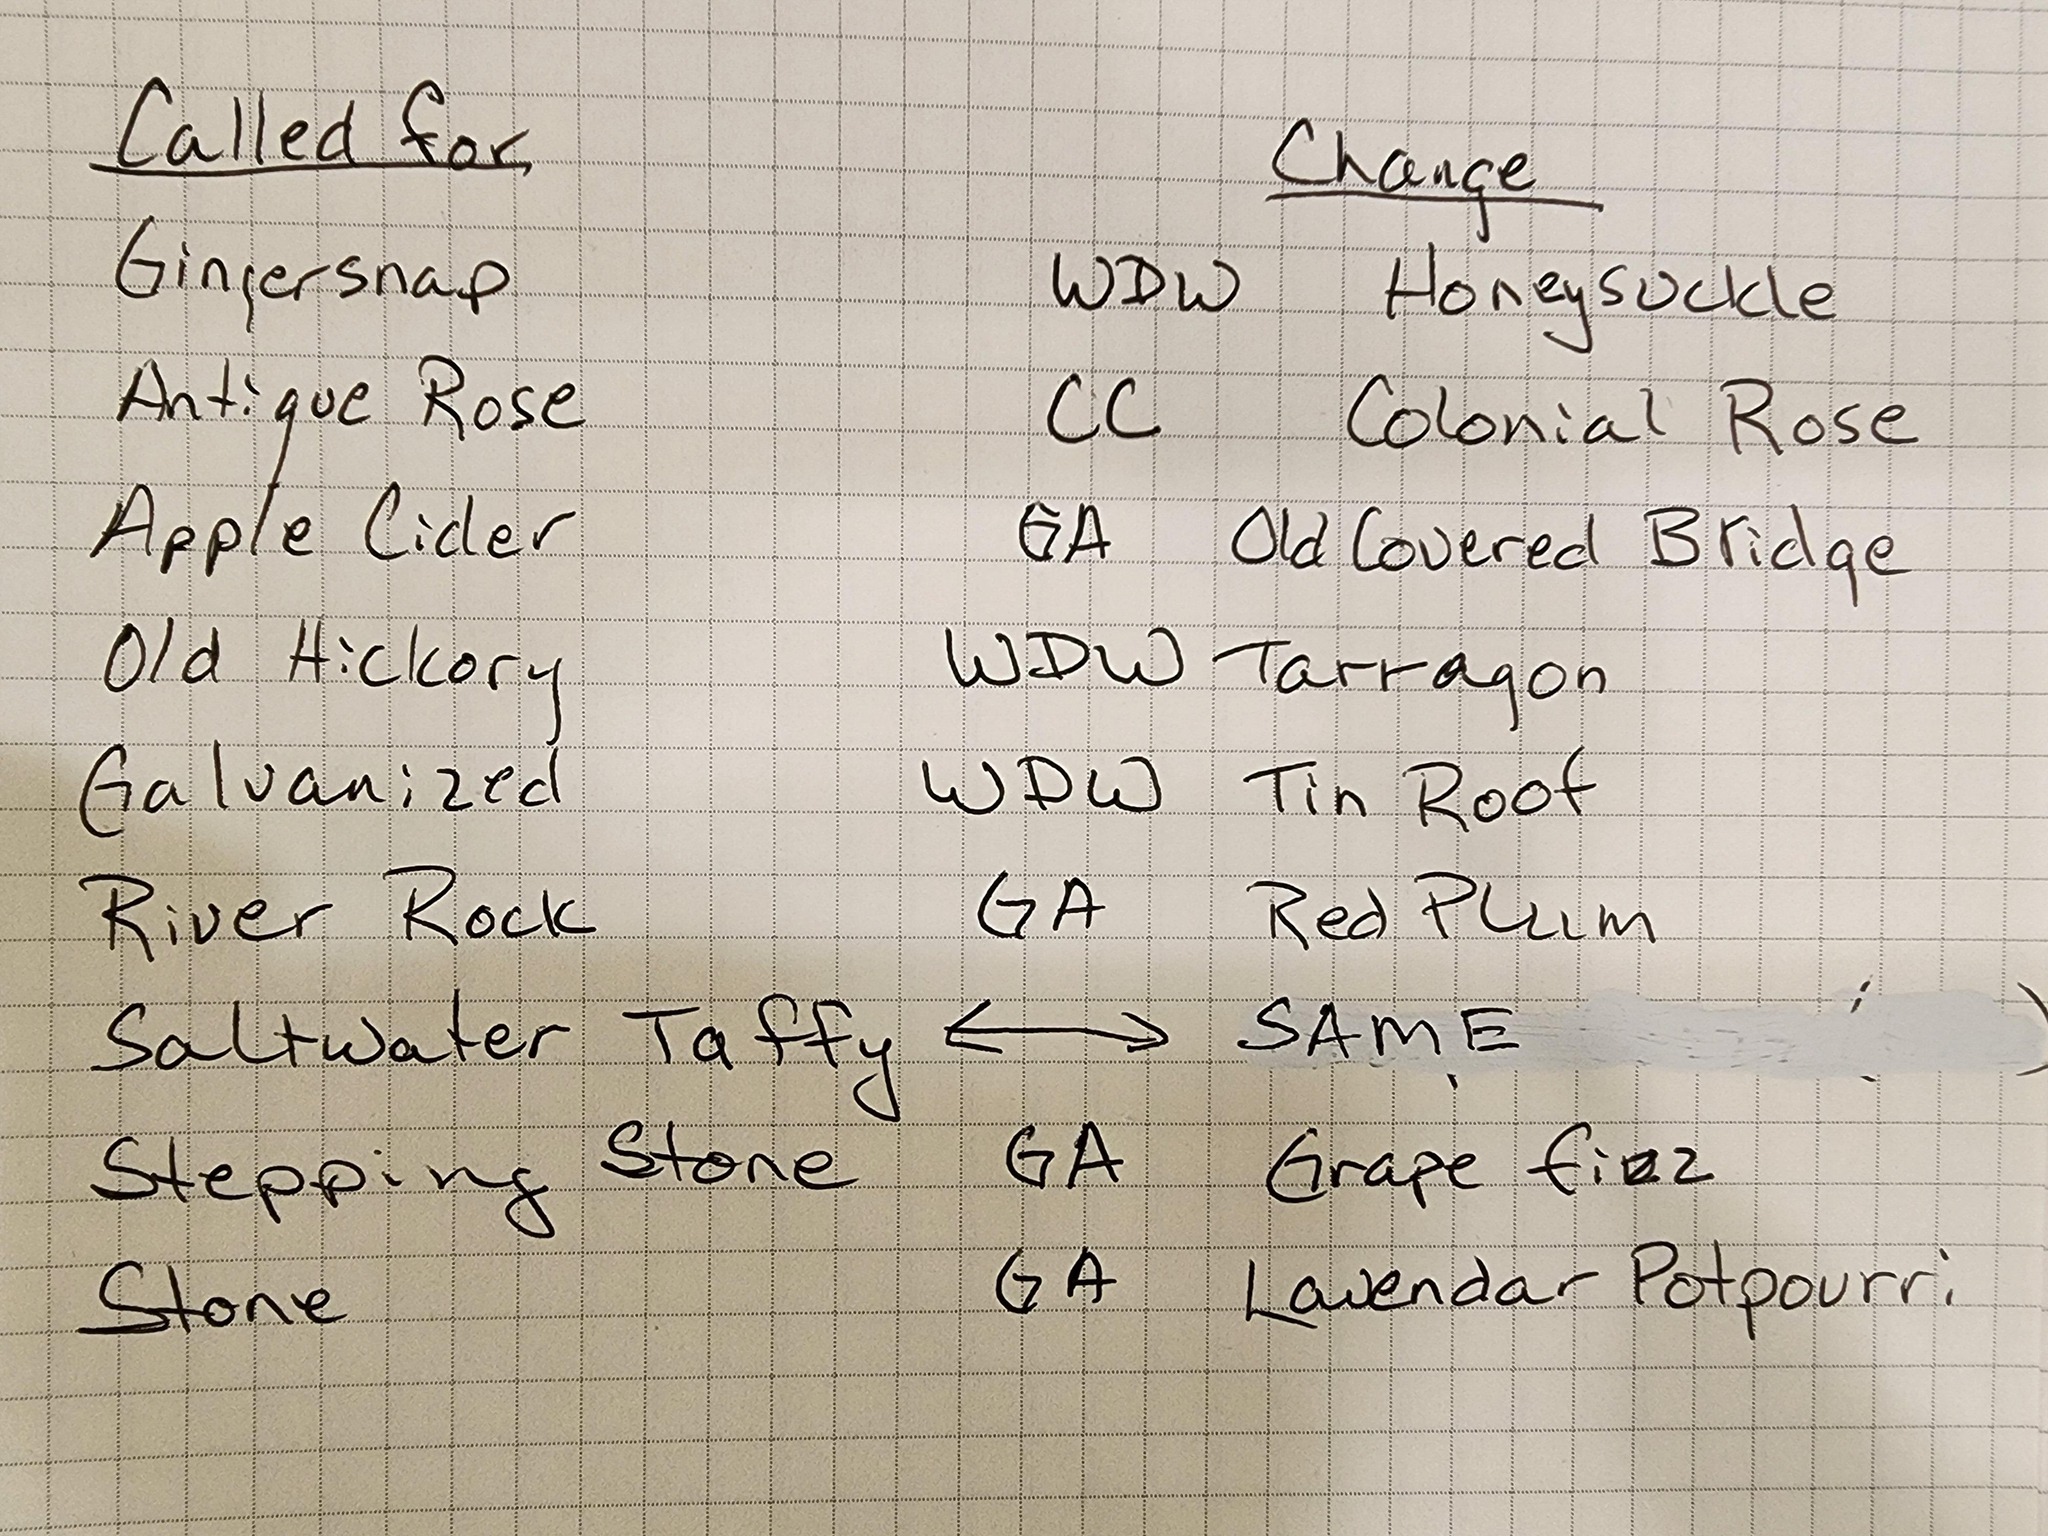 Called for Change
Gingersnap WDW Honeysuckle
Antique Rose CC Colonial Rose
Apple Cider GA Old Covered Bridge
Old Hickory WDW Tarragon
Galvanized WDW Tin Roof
River Rock GA Red Plum
Saltwater Taffy ↔ SAME
Stepping Stone GA Grape fizz
Stone GA Lavendar Potpourri